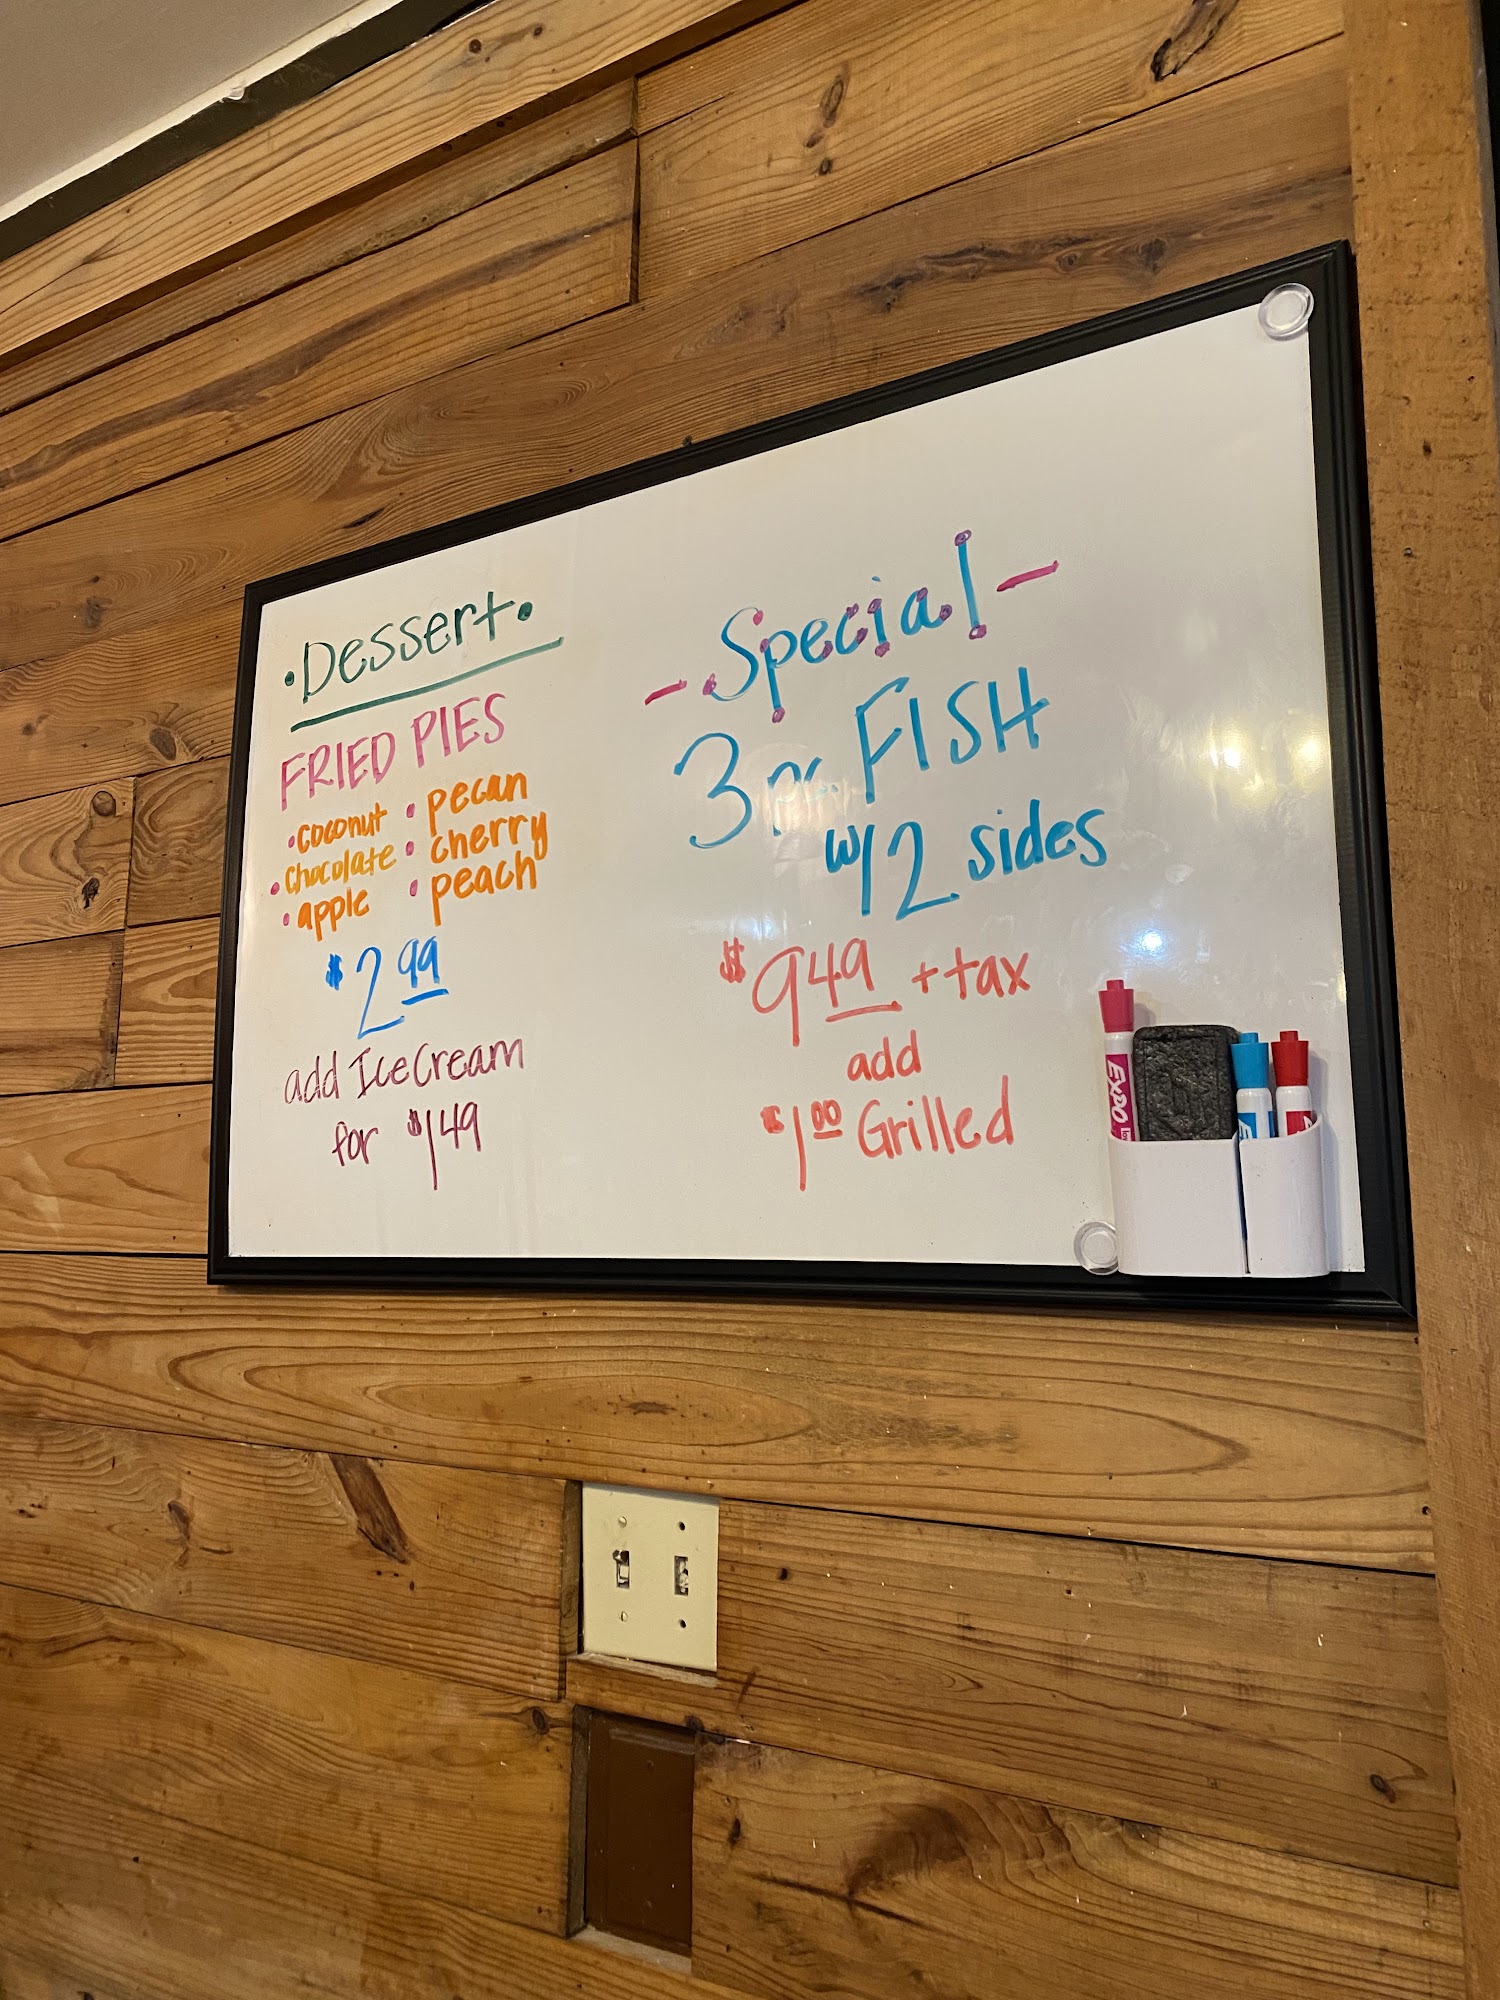 •Dessert•
FRIED PIES
•coconut
•chocolate
•apple
•pecan
•cherry
•peach
$2.99
add Ice Cream
for $1.49
-Special-
3 pc FISH
w/2 sides
$9.49 + tax
add
$1.00 Grilled
EXPO